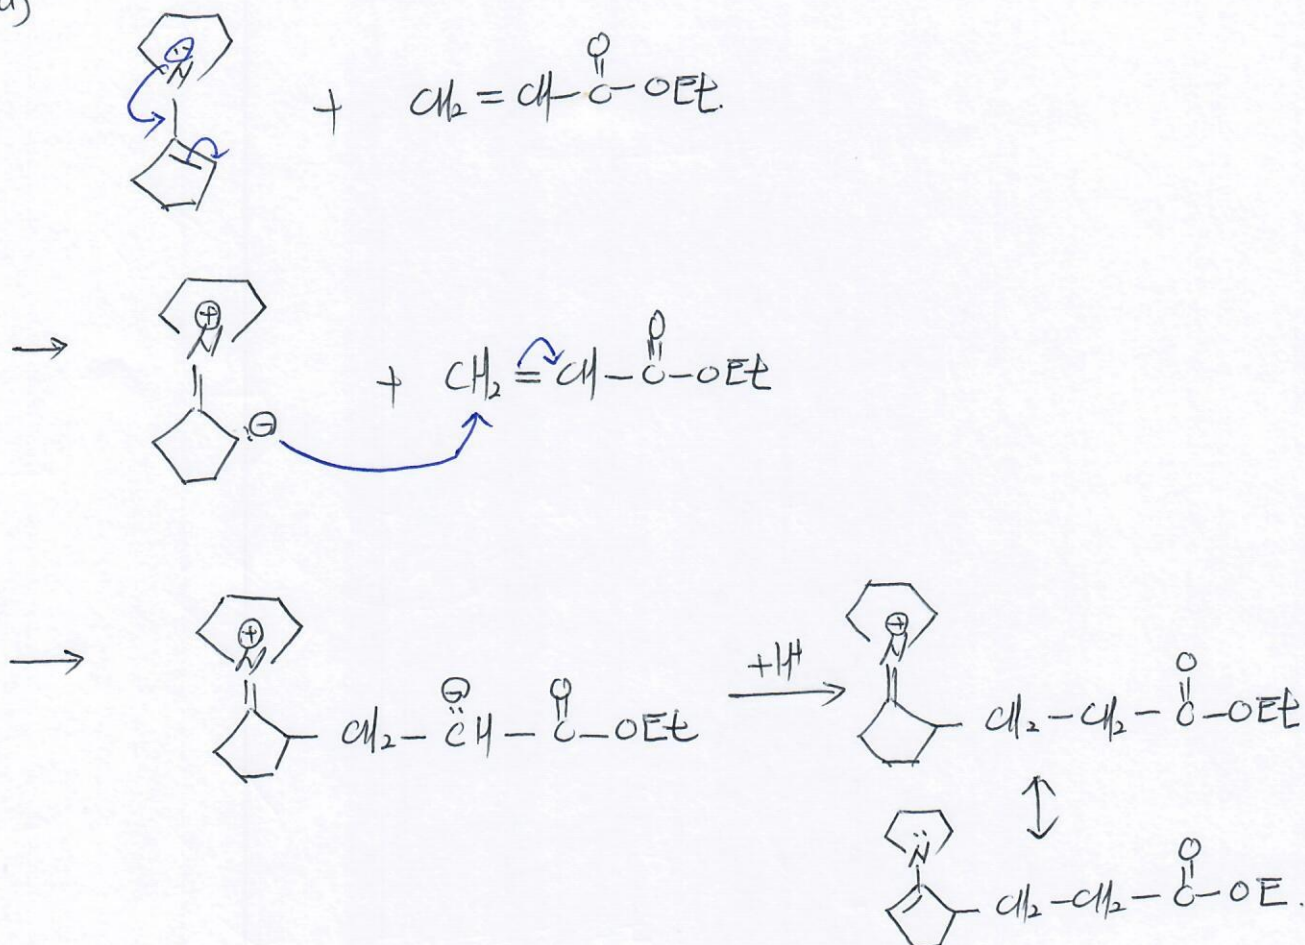 a)
N
+ CH₂ = CH – C – OEt.
O
→ N ⊕
+ CH₂ = CH – C – OEt
O
⊖
→ N ⊕
CH₂ – CH – C – OEt
⊖ O
+H
→ N ⊕
CH₂ – CH₂ – C – OEt
O
↕
N
CH₂ – CH₂ – C – OE.
O